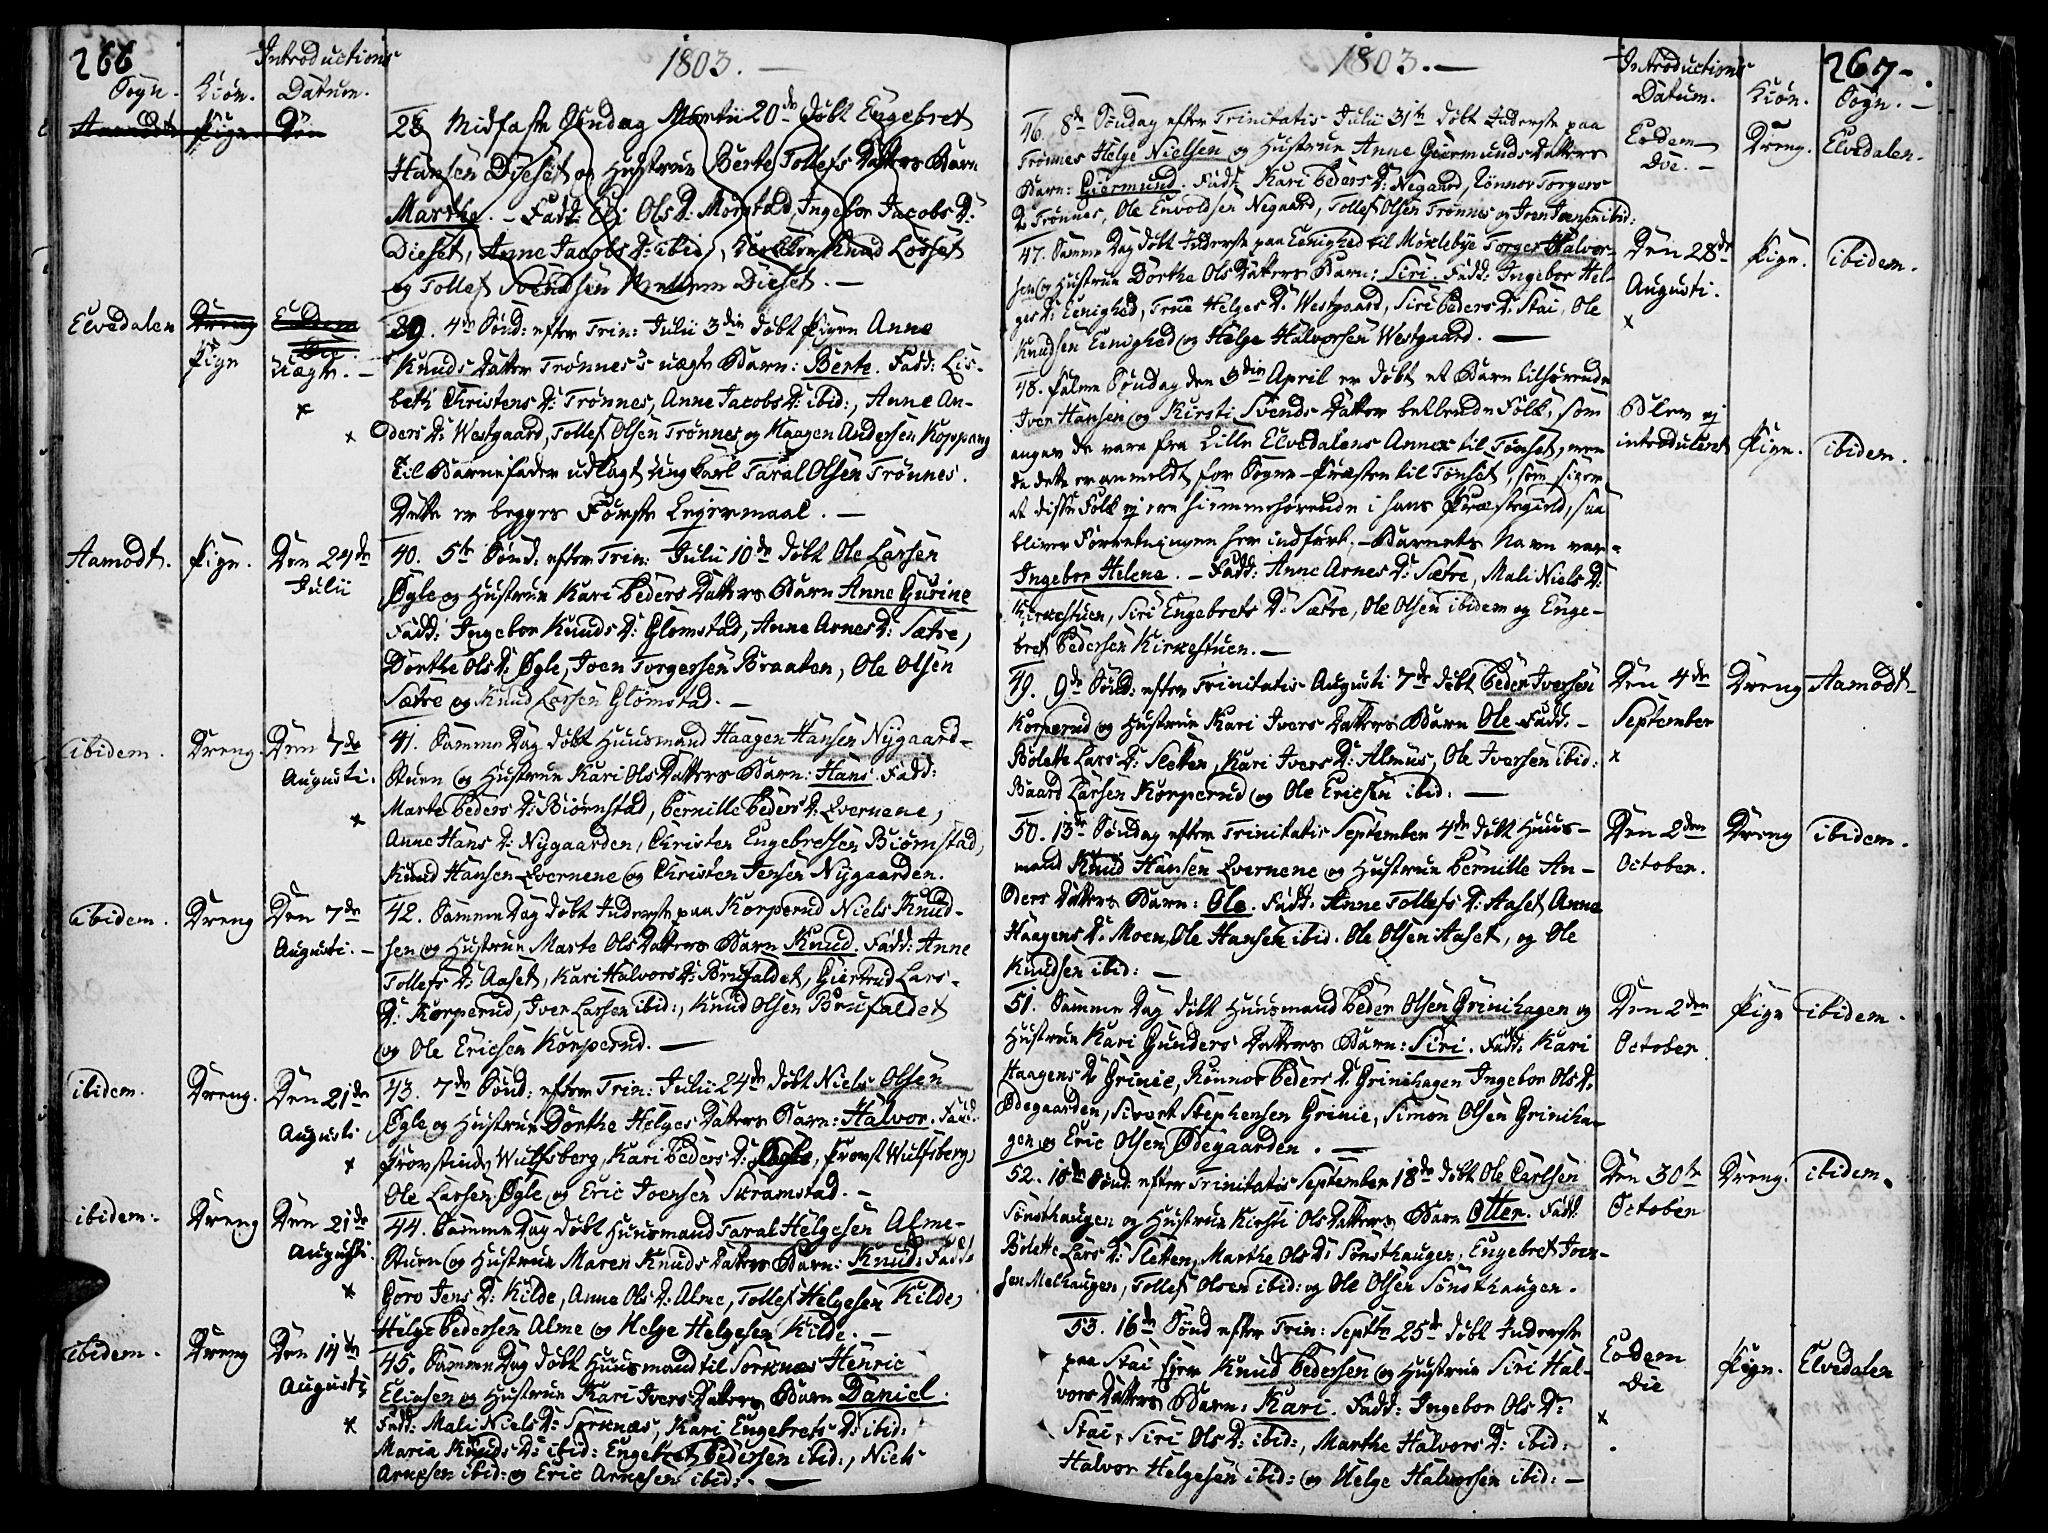 266
Introductions
1803. —
Sogn. Kiön. Datum.
Aamodt Pige Döu
28 Midfaste Söndag Martii 20de döbt Engebret
Hansen Dyeset og Hustrue Berte Tollefs Datters Barn
Marthe. — Fadd: Eli Ols D: Morstad, Ingebor Jacobs D:
Dieset, Anne Jacobs D: ibid, Knud Lösset
og Tollef Svendsen Dieset. —
Elvedalen Dreng Eodem
Pige Die
Uægte. —
39. 4de Sönd: efter Trin: Julii 3die döbt Pigen Anne
Knuds Datter Trönnes's uægte Barn: Berte. Fadd: Lis-
beth Christens D: Trönnes, Anne Jacobs D: ibid:, Anne An-
ders D: Westgaard, Tollef Olsen Trönnes og Haagen Andersen Koppang
til Barnefader udlagt Ung Karl Taral Olsen Trönnes.
Dette er begges Förste Leyermaal. —
Aamodt. Pige. Den 24de
Julii
40. 5te Sönd: efter Trin: Julii 10de döbt Ole Larsen
Øgle og Hustrue Kari Peders Datters Barn Anne Gurine
Fadd: Ingebor Knuds D: Glomstad, Anne Arnes D: Sætre,
Dorthe Ols D: Øgle, Joen Torgersen Braaten, Ole Olsen
Sætre og Knud Larsen Glomstad. —
ibidem. Dreng. Den 7de
Augusti.
41. Samme Dag döbt Huusmand Haagen Hansen Nygaard-
Stuen og Hustrue Kari Ols Datters Barn: Hans. Fadd:
Marte Peders D: Biörnstad, Pernille Peders D: Qvernene,
Anne Hans D: Nygaarden, Christen Engebretsen Biörnstad,
Knud Hansen Qvernene og Christen Jensen Nygaarden.
ibidem. Dreng Den 7de
Augusti. —
42. Samme Dag döbt Inderste paa Korperud Niels Knud-
sen og Hustrue Marte Ols Datters Barn Knud. Fadd: Anne
Tollefs D: Aaset, Kari Halvors D: Brufaldet, Giertrud Lars-
D: Korperud, Iver Larsen ibid:, Knud Olsen Brufaldet
og Ole Ericsen Korperud. —
ibidem. Dreng. Den 21de
Augusti
43. 7de Sönd: efter Trin: Julii 24de döbt Niels Olsen
Øgle og Hustrue Dorthe Helges Datters Barn: Halvor. Fad.
Provstinde Wulfsberg, Kari Peders D: Øgle, Provst Wulfsberg,
Ole Larsen Øgle og Eric Joensen Skramstad. —
ibidem. Dreng Den 21de
Augusti.
44. Samme Dag döbt Huusmand Taral Helgesen Alme-
Stuen og Hustrue Maren Knuds Datters Barn: Knud. Fadd:
Goro Jens D: Kilde, Anne Ols D: Alme, Tollef Helgesen Kilde,
Helge Pedersen Alme og Helge Helgesen Kilde. —
ibidem. Dreng Den 14de
Augusti
45. Samme Dag döbt Huusmand til Sorknæs Henric
Eliasen og Hustrue Kari Ivers Datters Barn Daniel.
Fadd: Mali Niels D: Sorknæs, Kari Engebrets D: ibid:
Maria Knuds D: ibid: Engebret Pedersen ibid:, Niels
Arnesen ibid: og Eric Arnesen ibid: —
1803. —
Introductions
267
Datum. Kiön. Sogn. —
46. 8de Söndag efter Trinitatis Julii 31te döbt Inderste paa
Trönnes Helge Nielsen og Hustrue Anne Giermunds Datters
Barn: Giermund. Fadd: Kari Peders D: Negaard, Rönnov Torgers
D: Trönnes, Ole Envoldsen Negaard, Tollef Olsen Trönnes og Iver Iversen ibid:
Eodem Die. — Dreng. Elvedalen.
47. Samme Dag döbt Inderste paa Eenighed til Möklebye Torger Halvor-
sen og Hustrue Dorthe Ols Datters Barn: Siri. Fadd: Ingebor Hel-
ges D: Eenighed, True Helges D: Westgaard, Siri Peders D: Stai, Ole
Knudsen Eenighed og Helge Halvorsen Westgaard. —
Den 28de Augusti. Pige. ibidem.
48. Palme Söndag den 3die April er döbt et Barn tilhörende
Iver Hansen og Kirsti Svends Datter betlende Folk, som
angav de vare fra Lille Elvedalens Annex til Tönset, men
da dette er anmeldt for Sogne-Præsten til Tönset, som siger
at disse Folk ej ere hiemmehörende i hans Præstegield, saa
bliver Forretningen her indfört. — Barnets Navn var
Ingebor Helene. — Fadd: Anne Arnes D: Sætre, Mali Niels D:
Kirkestuen, Siri Engebrets D: Sætre, Ole Olsen ibidem og Enge-
bret Pedersen Kirkestuen. —
Blev ej introduceret Pige. ibidem.
49. 9de Sönd: efter Trinitatis Augusti 7de döbt Peder Iversen
Korperud og Hustrue Kari Ivers Datters Barn Ole. Fadd: —
Bolette Lars D: Sletten, Kari Ivers D: Almus, Ole Iversen ibid:
Baard Larsen Korperud og Ole Ericsen ibid: —
Den 4de September Dreng Aamodt
50. 13de Söndag efter Trinitatis September 4de döbt Huus-
mand Knud Hansen Qvernene og Hustrue Pernille An-
ders Datters Barn: Ole. Fadd: Anne Tollefs D: Aaset, Anne
Haagens D: Moen, Ole Hansen ibid. Ole Olsen Aaset, og Ole
Knudsen ibid: —
Den 2den October. Dreng ibidem.
51. Samme Dag döbt Huusmand Peder Olsen Grinihagen og
Hustrue Kari Gunders Datters Barn: Siri. Fadd: Kari
Haagens D: Grinie, Rönnov Peders D: Grinihagen Ingebor Ols D:
Ødegaarden, Sivert Stephensen Grinie, Simon Olsen Griniha-
gen og Eric Olsen Ødegaarden. —
Den 2den October Pige ibidem.
52. 15de Sönd: efter Trinitatis September 18de döbt Ole Carlsen
Sönsthaugen og Hustrue Kirsti Ols Datters Barn Otter. Fadd.
Bolette Lars D: Sletten, Marthe Ols D: Sönsthaugen, Engebret Joen-
sen Melhaugen, Tollef Olsen ibid: og Ole Olsen Sönsthaugen.
Den 30te October Dreng. ibidem.
53. 16de Sönd efter Trin: Septbr 25de döbt Inderste
paa Stai Eyer Knud Pedersen og Hustrue Siri Hal-
vors Datters Barn: Kari. Fadd: Ingebor Ols D:
Stai, Siri Ols D: ibid:, Marthe Halvors D: ibid:
Halvor Helgesen ibid: og Helge Halvorsen ibid: —
Eodem Die Pige. Elvedalen